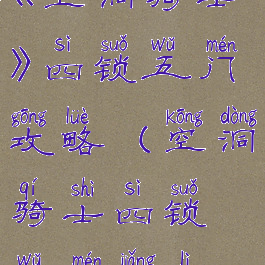 sì suǒ wǔ mén
》四锁五门
gōng lüè kōng dòng
攻略（空洞
qí shì sì suǒ
骑士四锁
wǔ mén jiǎng lì